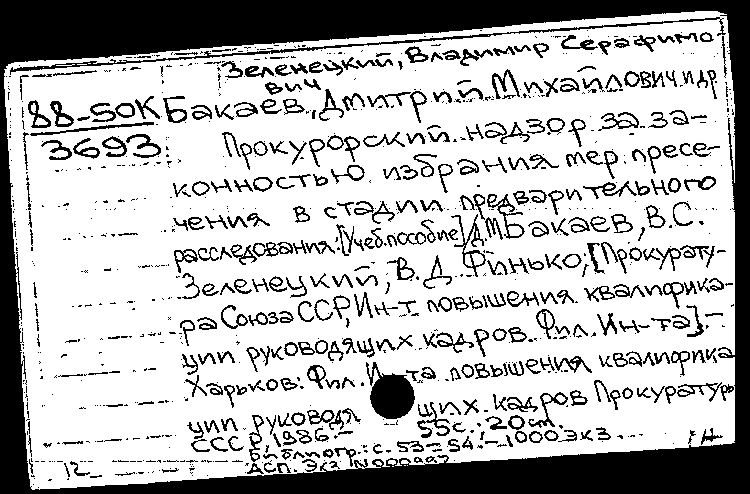 Зеленецкий, Владимир Серафимо-
вич
88-50К Бакаев, Дмитрий Михайлович и др
3693 Прокурорский надзор за за-
конностью избрания мер пресе-
чения в стадии предварительного
расследования: [Учеб. пособие] / Д.М. Бакаев, В.С.
Зеленецкий, В.Д. Финько; [Прокурату-
ра Союза ССР, Ин-т повышения квалифика-
ции руководящих кадров. Фил. Ин-та]. -
Харьков: Фил. Ин-та повышения квалифика
ции руководящих кадров Прокуратуры
СССР, 1986. - 55 с.; 20 см.
Библиогр.: с. 53-54. - 1000 экз...
12
Асп. Экз N000997